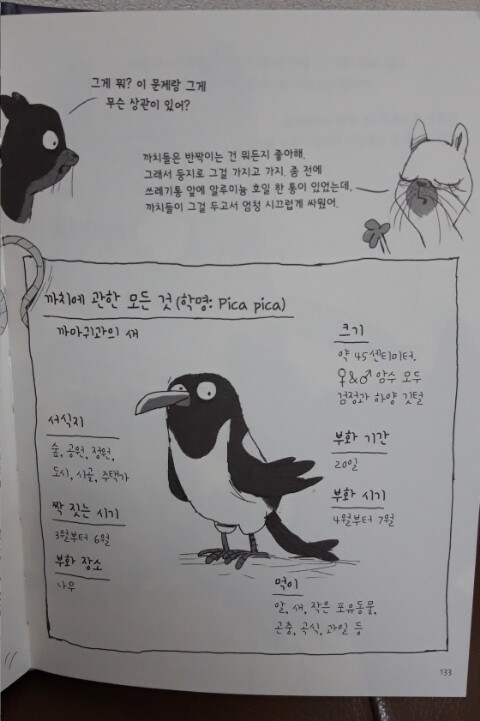 그게 뭐? 이 문제랑 그게
무슨 상관이 있어?
까치들은 반짝이는 건 뭐든지 좋아해.
그래서 둥지로 그걸 가지고 가지. 좀 전에
쓰레기통 앞에 알루미늄 호일 한 통이 있었는데,
까치들이 그걸 두고서 엄청 시끄럽게 싸웠어.
까치에 관한 모든 것 (학명: Pica pica)
까마귀과의 새
크기
약 45센티미터.
♀&♂ 암수 모두
검정과 하양 깃털
서식지
숲, 공원, 정원,
도시, 시골, 주택가
부화 기간
20일
짝 짓는 시기
3월부터 6월
부화 시기
4월부터 7월
부화 장소
나무
먹이
알, 새, 작은 포유동물,
곤충, 곡식, 과일 등
133